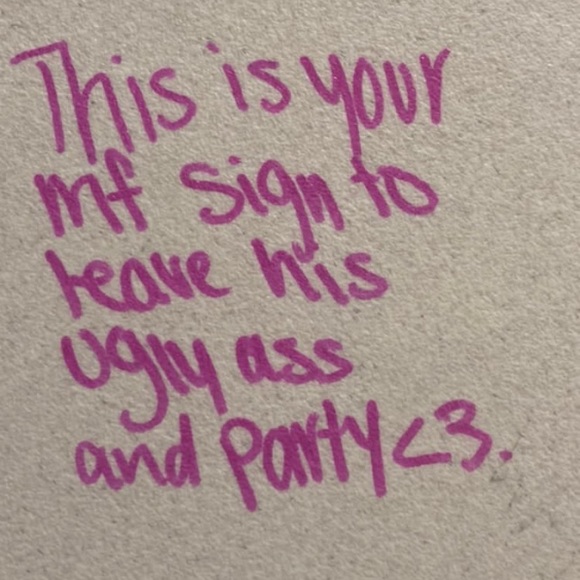 This is your
mf sign to
leave his
ugly ass
and party <3.